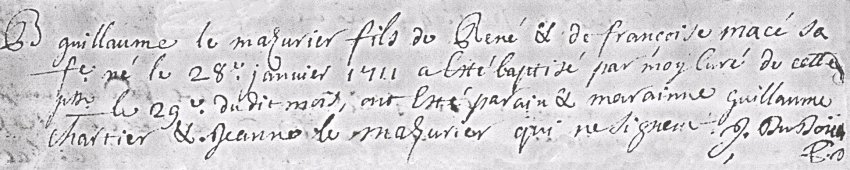 B guillaume le mazurier fils de René & de francoise macé sa
fe. né le 28e. janvier 1711 a Esté baptisé par moy Curé de cette
psse le 29e. dudit mois, ont Esté parain & marainne guillaume
chartier & Jeanne le mazurier qui ne signent. J.